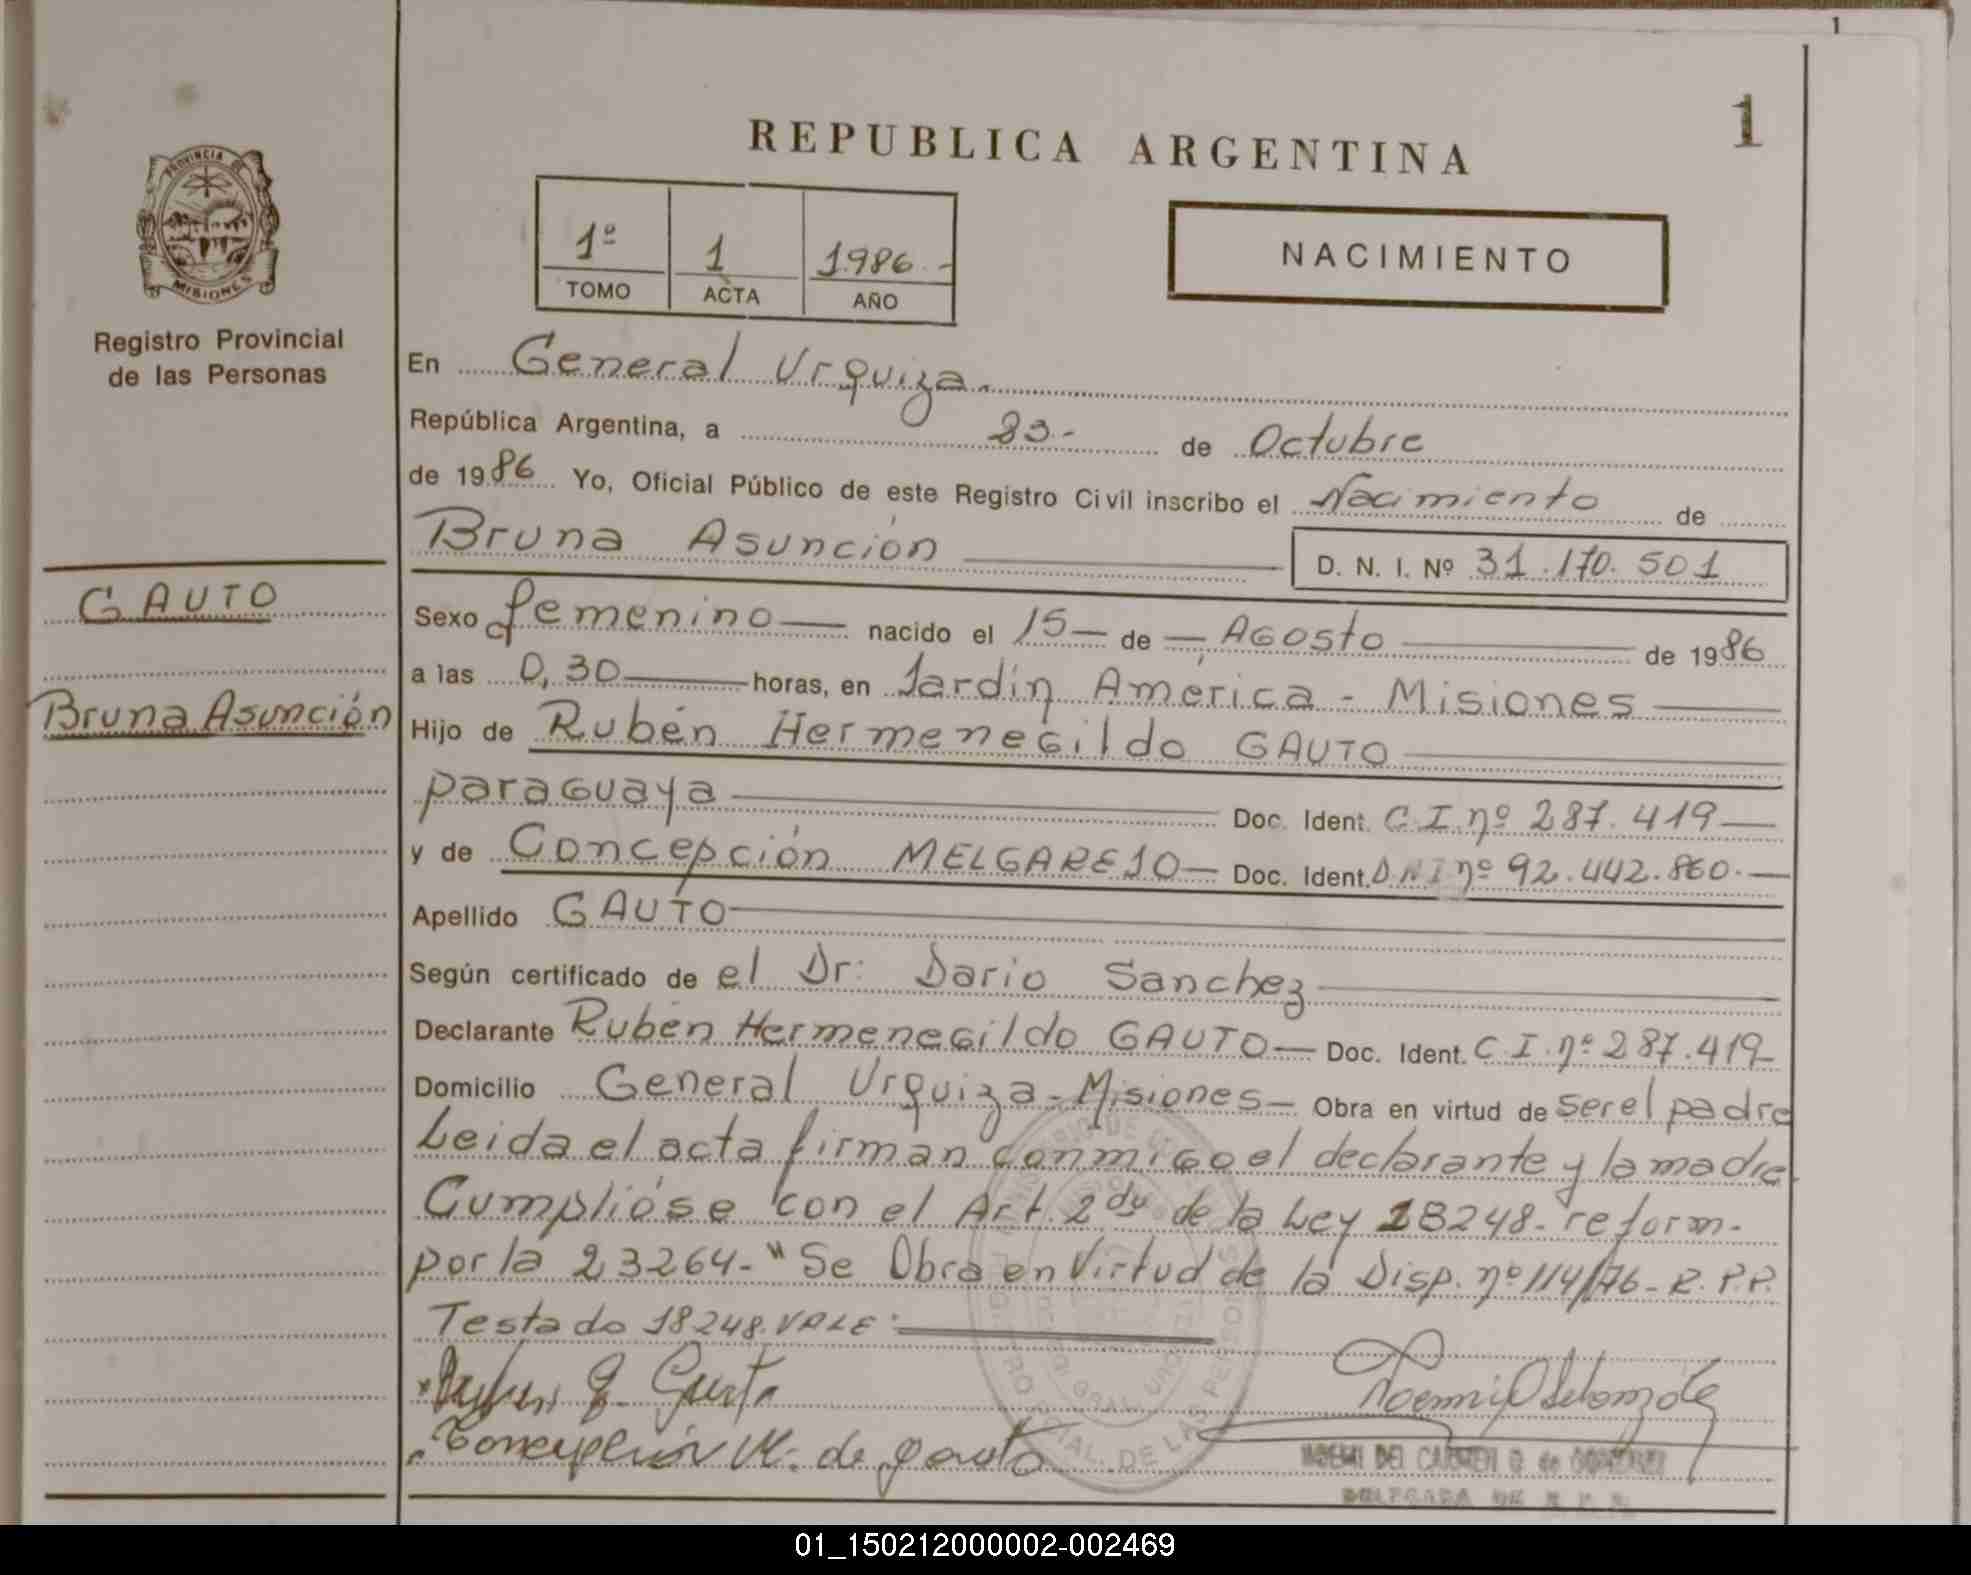 1
REPUBLICA ARGENTINA
1
PROVINCIA DE
MISIONES
Registro Provincial
de las Personas
1º 1 1.986.-
TOMO ACTA AÑO
NACIMIENTO
En General Urquiza.
República Argentina, a 23.- de Octubre
de 1986 Yo, Oficial Público de este Registro Civil inscribo el Nacimiento de
Bruna Asunción
D. N. I. Nº 31.170.501
GAUTO
Bruna Asunción
Sexo femenino — nacido el 15 — de — Agosto — de 1986
a las 0,30 — horas, en Jardín America - Misiones —
Hijo de Rubén Hermenegildo GAUTO —
paraguaya — Doc. Ident. C.I. nº 287.419 —
y de Concepción MELGAREJO — Doc. Ident. D.N.I nº 92.442.860.—
Apellido GAUTO —
Según certificado de el Dr: Dario Sanchez —
Declarante Rubén Hermenegildo GAUTO — Doc. Ident. C.I. nº 287.419-
Domicilio General Urquiza - Misiones — Obra en virtud de ser el padre
Leida el acta firman conmigo el declarante y la madre
Cumplióse con el Art. 2do de la Ley 18248- reform-
por la 23264- "Se Obra en Virtud de la Disp. nº 114/76- R.P.P.
Testado 18248. VALE:
Concepción M. de Gauto
NOEMI DEL CARMEN O. de GONZALEZ
DELEGADA DE R. P. P.
01_150212000002-002469